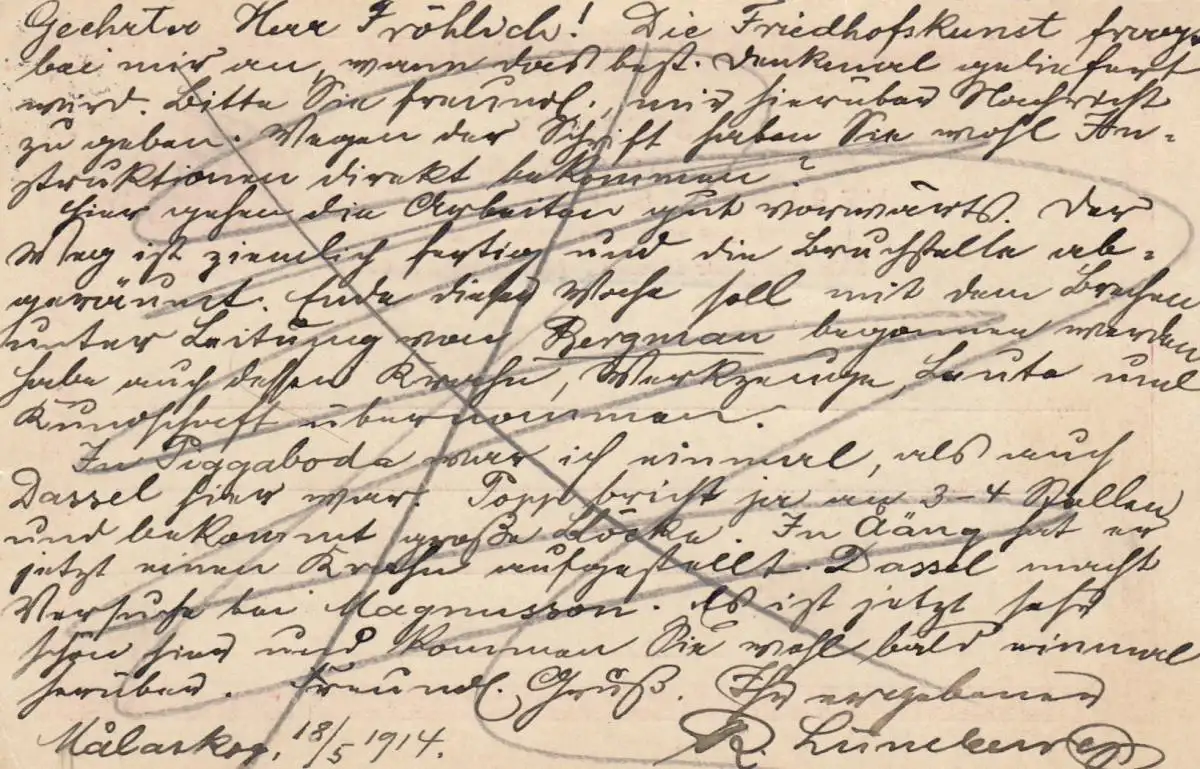 Geehrter Herr Fröhlich! Die Friedhofskunst fragt
bei mir an, wann das best. Denkmal geliefert
wird. Bitte Sie freundl., mir hierüber Nachricht
zu geben. Wegen der Schrift haben Sie wohl In-
struktionen direkt bekommen?
Hier gehen die Arbeiten gut vorwärts. Der
Weg ist ziemlich fertig und die Bruchstelle ab-
geräumt. Ende dieser Woche soll mit dem Brechen
unter Leitung von Bergman begonnen werden
habe auch dessen Krahn, Werkzeuge, Leute und
Kundschaft übernommen.
In Piggaboda war ich einmal, als auch
Dassel hier war. Popp bricht ja an 3-4 Stellen
und bekommt große Blöcke. In Aäng hat er
jetzt einen Krahn aufgestellt. Dassel macht
Versuche bei Magnusson. Es ist jetzt sehr
schön hier und kommen Sie wohl bald einmal
herüber. Freundl. Gruß. Ihr ergebener
Målaskog, 18/5 1914. R.